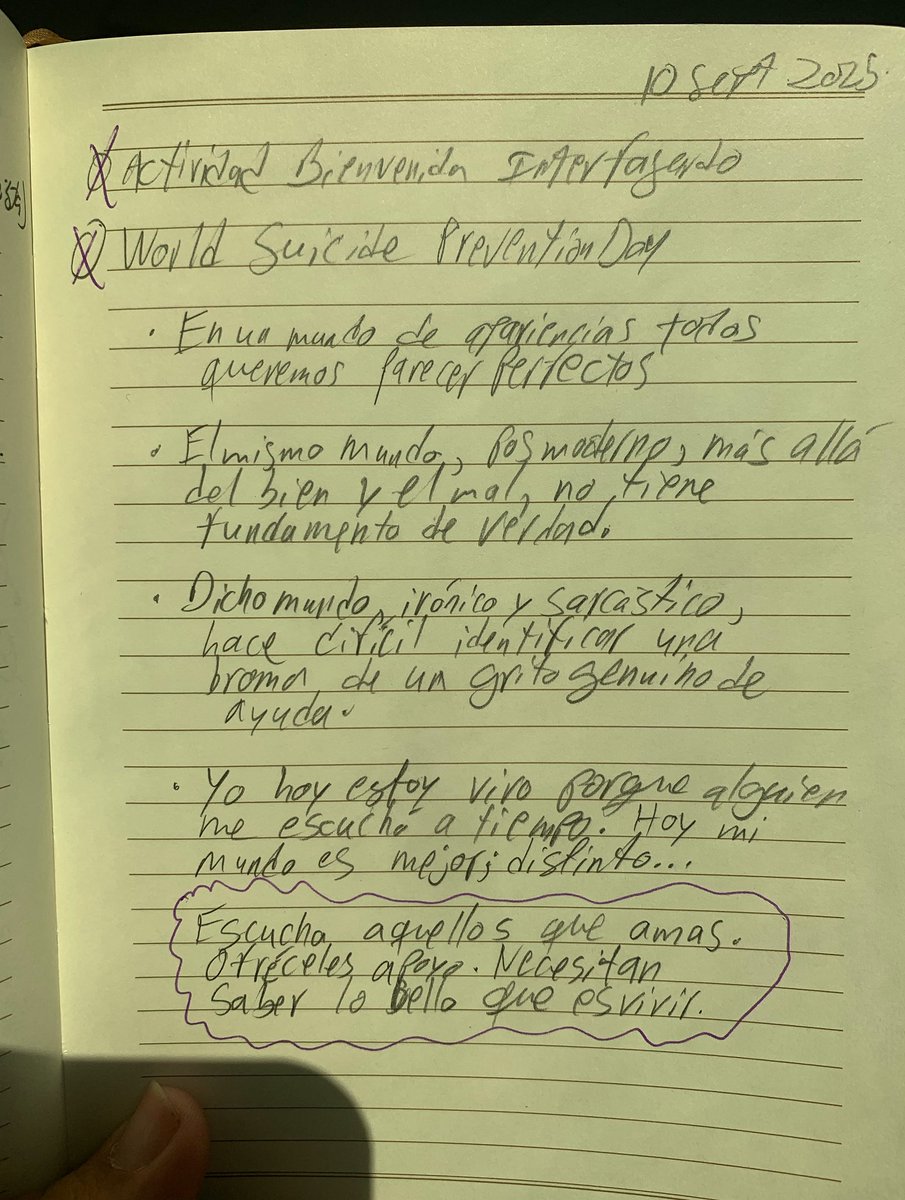 10 Sept 2025
Actividad Bienvenida Interfagerdo
World Suicide Prevention Day
· En un mundo de apariencias todos
queremos parecer perfectos
· El mismo mundo, posmoderno, más allá
del bien y el mal, no tiene
fundamento de verdad.
· Dicho mundo, irónico y sarcástico,
hace difícil identificar una
broma de un grito genuino de
ayuda.
· Yo hoy estoy vivo porque alguien
me escuchó a tiempo. Hoy mi
mundo es mejor; distinto...
Escucha aquellos que amas.
Ofréceles apoyo. Necesitan
saber lo bello que es vivir.